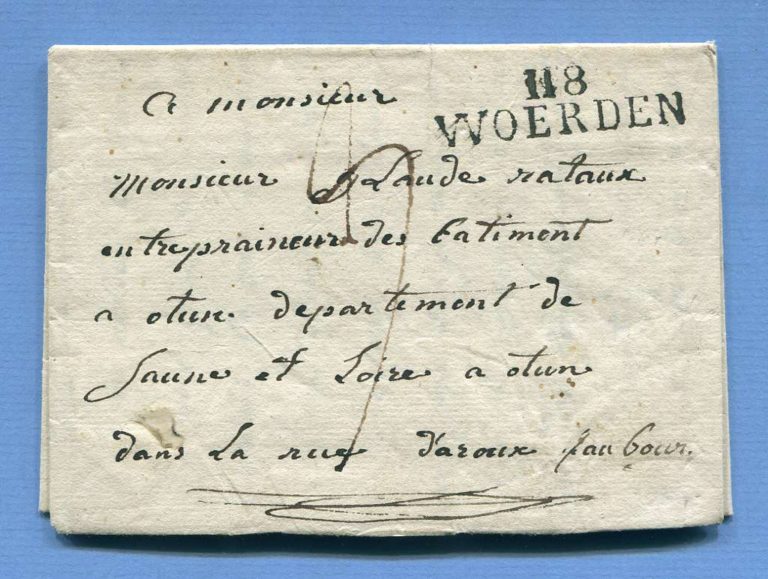 118
WOERDEN
a monsieur
monsieur Claude rataux
entrepraineur des batimont
a otun departement de
Saune et Loire a otun
dans La rue d'aroux faubour.